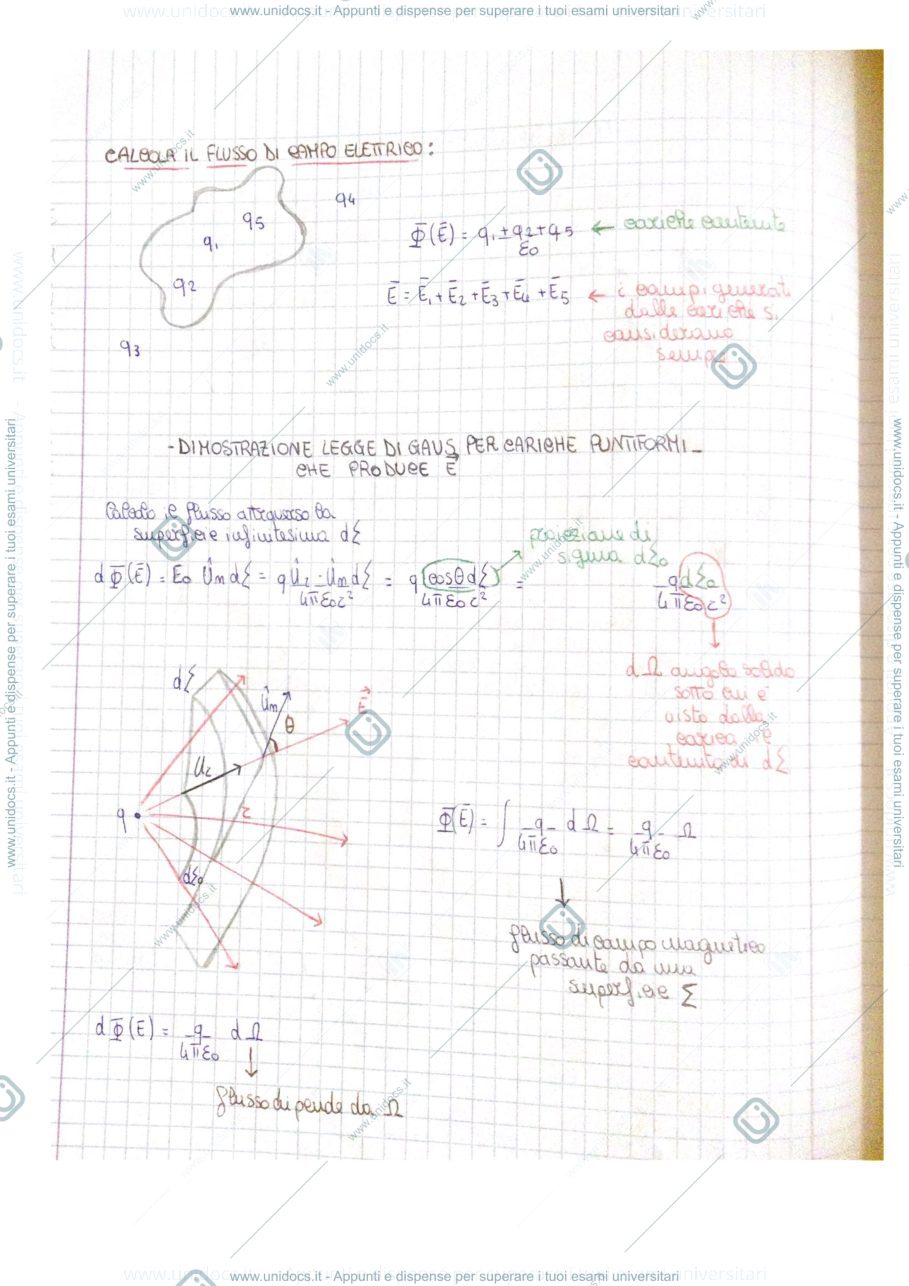 www.unidocs.it - Appunti e dispense per superare i tuoi esami universitari
CALCOLA IL FLUSSO DI CAMPO ELETTRICO:
q4
q5
q1
q2
q3
Φ(Ē) = q1+q2+q5 ← cariche contenute
ε0
Ē = Ē1 + Ē2 + Ē3 + Ē4 + Ē5 ← i campi generati
dalle cariche si
considerano
sempre
- DIMOSTRAZIONE LEGGE DI GAUS PER CARICHE PUNTIFORMI -
CHE PRODUCE E⃗
Calcolo il flusso attraverso la
superficie infinitesima dΣ
proiezione di
sigma dΣ0
dΦ(Ē) = E0 Ûm dΣ = q Û2 · Ûm dΣ = q cosθ dΣ = q dΣ0
4πε0r² 4πε0r² 4πε0r²
dΩ angolo solido
sotto cui è
visto dalla
carica il
contorno di dΣ
dΣ
Ûm
E⃗
θ
U2
q
r
dΣ0
Φ(Ē) = ∫ q dΩ = q Ω
4πε0 4πε0
flusso di campo magnetico
passante da una
superficie Σ
dΦ(E) = q dΩ
4πε0
flusso dipende da Ω
www.unidocs.it - Appunti e dispense per superare i tuoi esami universitari